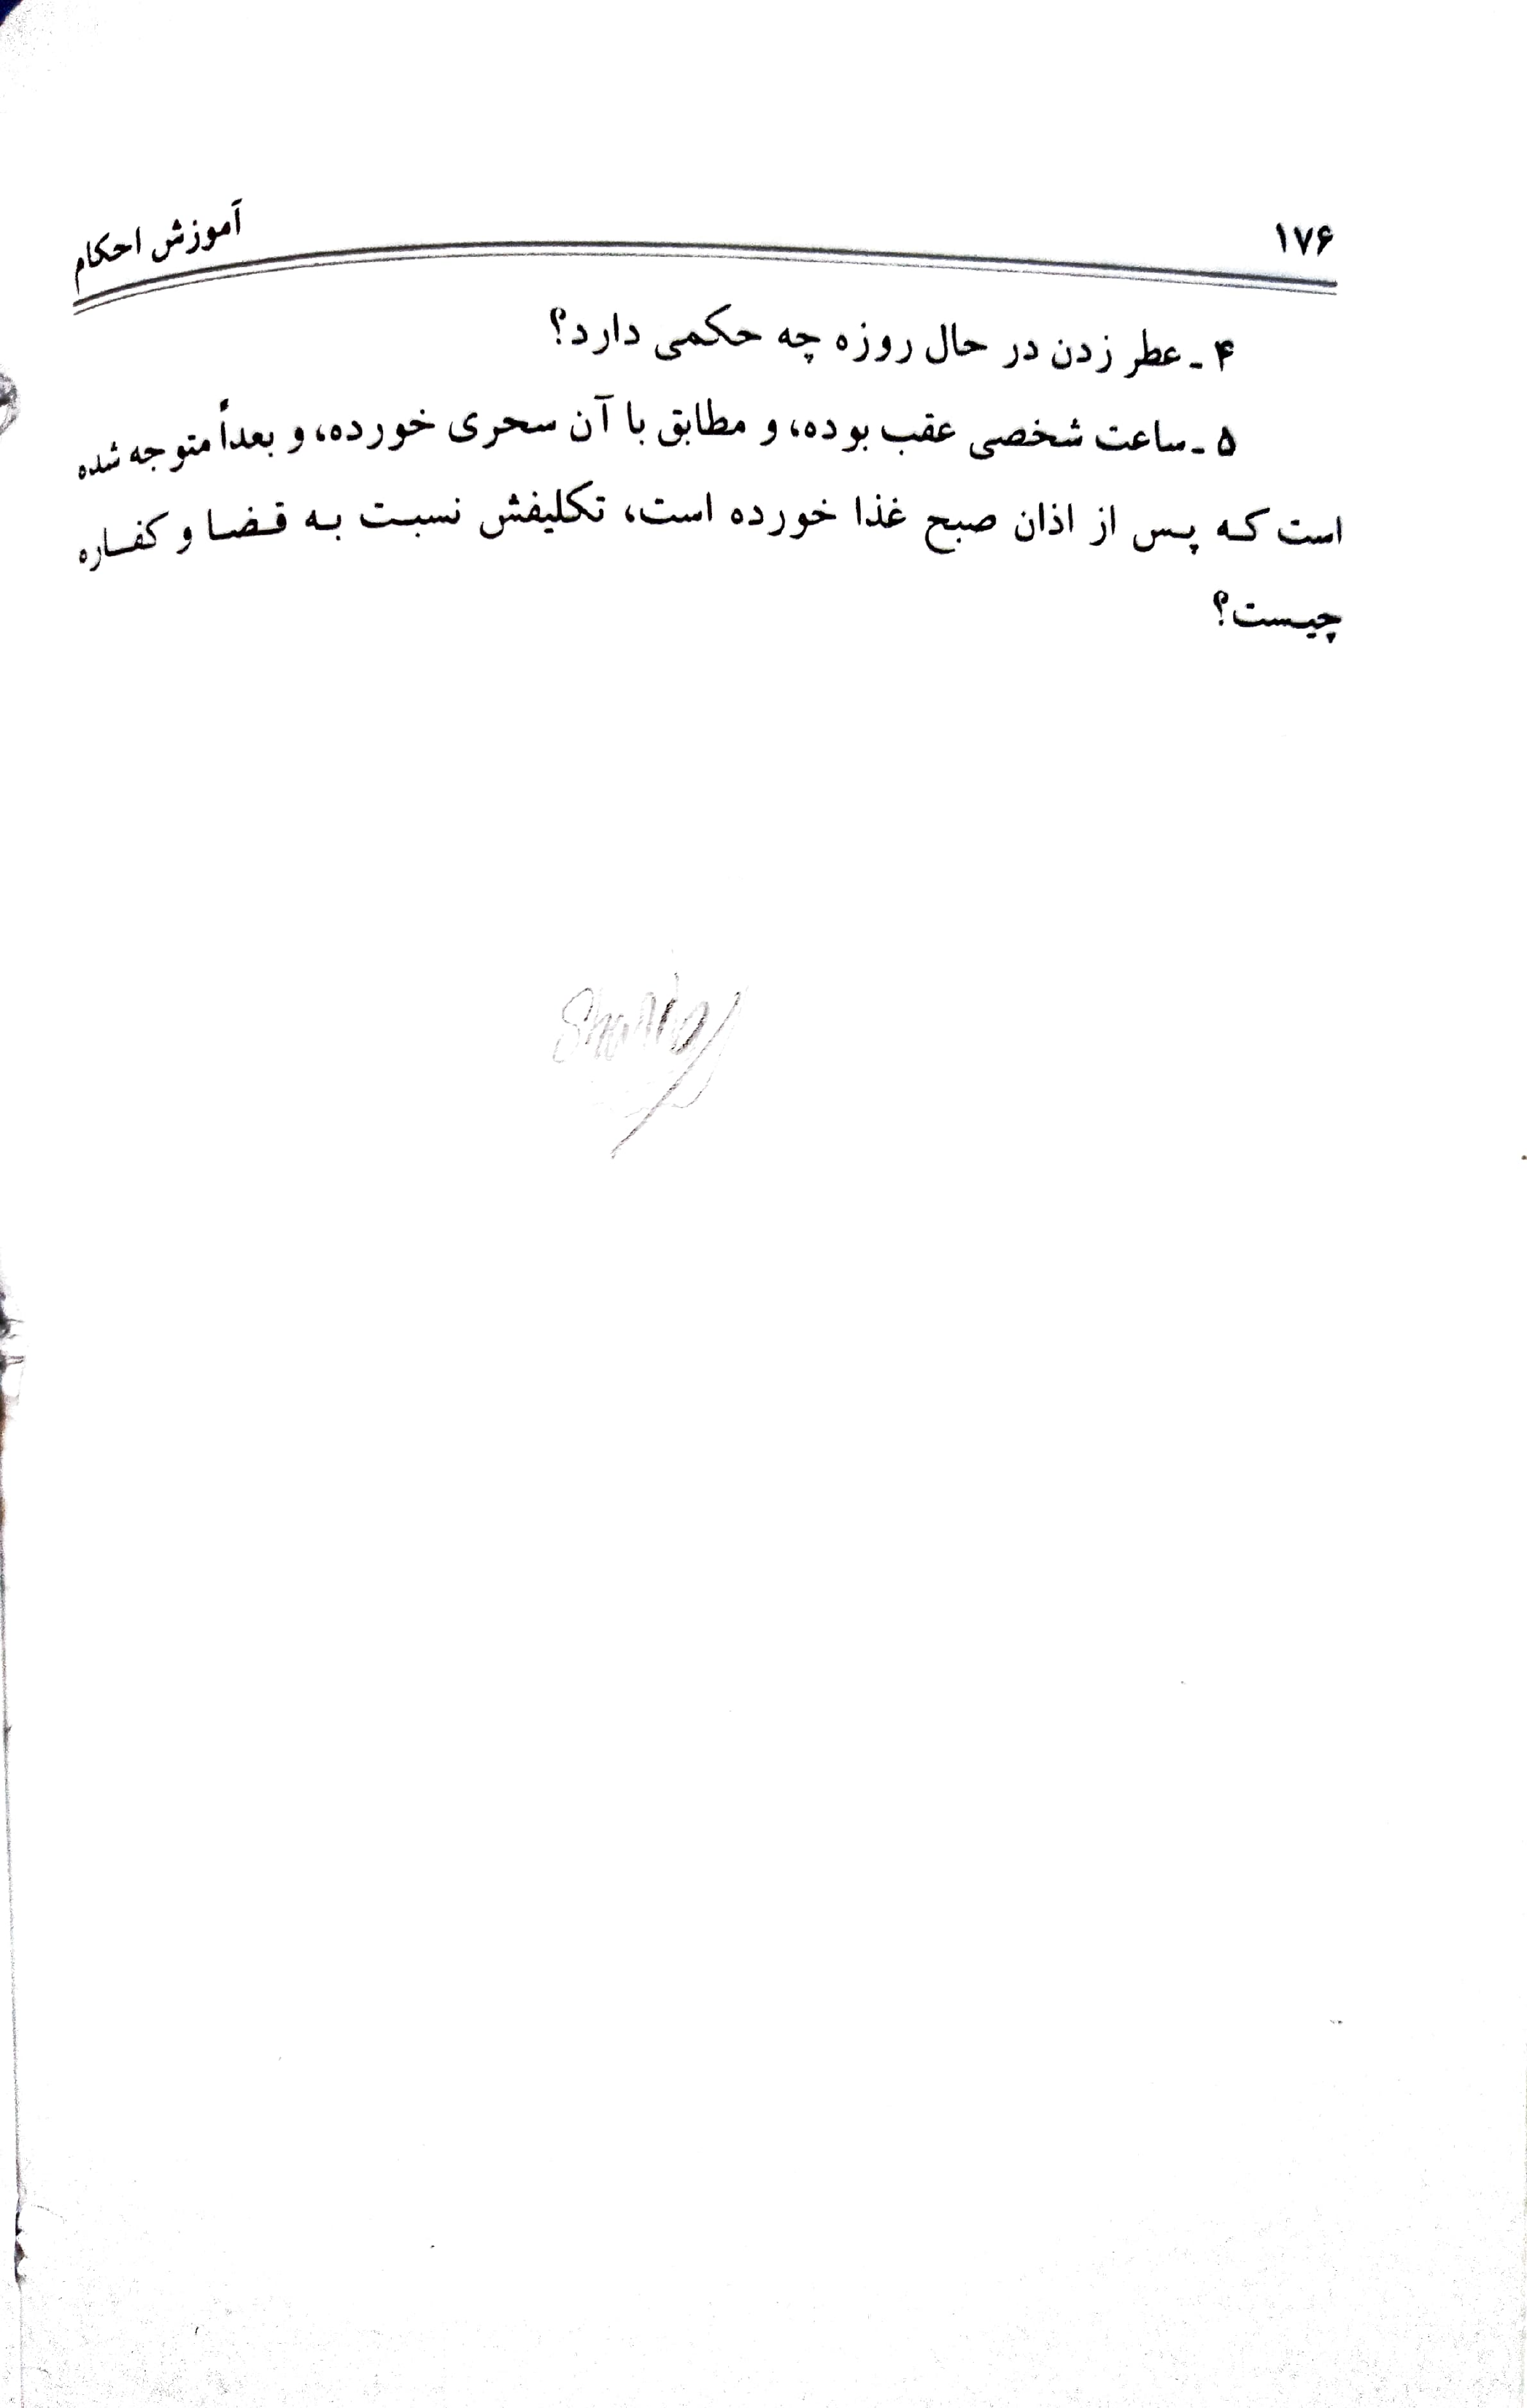 ۱۷۶
آموزش احکام
۴ ـ عطر زدن در حال روزه چه حکمی دارد؟
۵ ـ ساعت شخصی عقب بوده، و مطابق با آن سحری خورده، و بعداً متوجه شده
است که پس از اذان صبح غذا خورده است، تکلیفش نسبت به قضا و کفاره
چیست؟